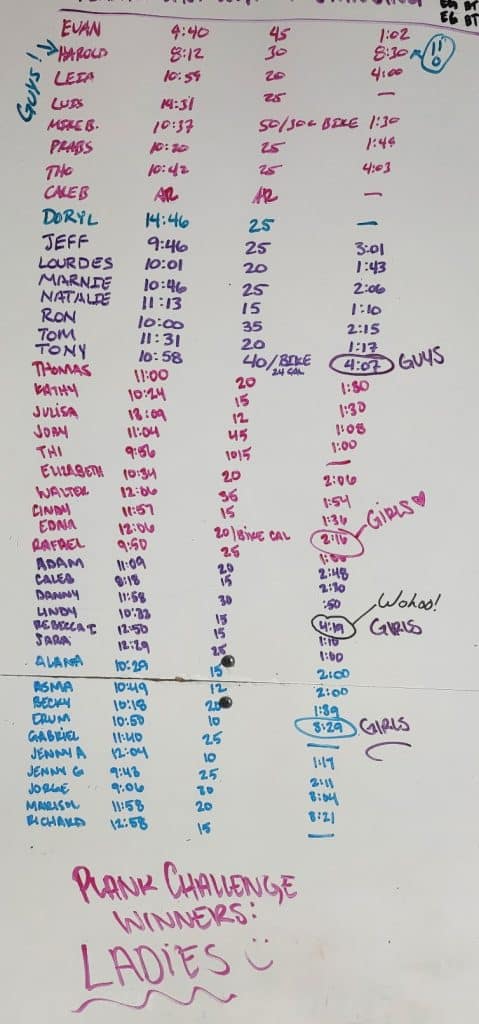 EG BT
EVAN 9:40 45 1:02
GUYS! HAROLD 8:12 30 8:30
LEIA 10:59 20 4:00
LUIS 14:31 25 —
MIKE B. 10:37 50/30c BIKE 1:30
PRABS 10:20 25 1:45
THO 10:42 25 4:03
CALEB AR AR —
DORYL 14:46 25 —
JEFF 9:46 25 3:01
LOURDES 10:01 20 1:43
MARNIE 10:46 25 2:06
NATALIE 11:13 15 1:10
RON 10:00 35 2:15
TOM 11:31 20 1:17
TONY 10:58 40/BIKE 24 CAL 4:07 GUYS
THOMAS 11:00 20
KATHY 10:24 15 1:30
JULISA 13:09 12 1:30
JOBY 11:04 45 1:08
THI 9:56 1015 1:00
ELIZABETH 10:34 20 —
WALTER 12:06 35 2:06
CINDY 11:57 15 1:54
EDNA 12:06 20/BIKE CAL 1:36
RAFAEL 9:50 25 2:16 GIRLS ♥
ADAM 11:09 20
CALEB 8:18 15 2:48
DANNY 11:58 30 2:30
LINDY 10:33 15 :50
REBECCA I 12:50 15 4:19 GIRLS Wohoo!
SARA 12:29 25 1:10
ALANA 10:29 15 1:00
ASMA 10:49 12 2:00
BECKY 10:18 20 2:00
ERUM 10:50 10 1:39
GABRIEL 11:40 25 3:29 GIRLS
JENNY A 12:04 10 —
JENNY G 9:43 25 1:17
JORGE 9:06 30 2:11
MARISOL 11:58 20 3:04
RICHARD 12:58 15 3:21
—
PLANK CHALLENGE
WINNERS:
LADIES